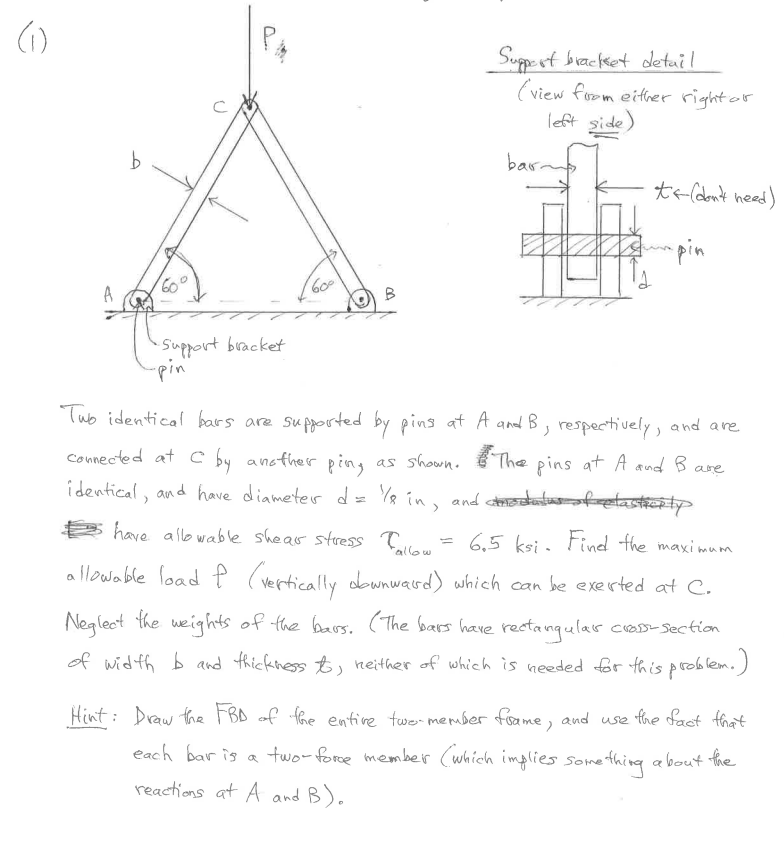 (1)
P
C
b
60°
60°
A
B
support bracket
pin
Support bracket detail
(view from either right or
left side)
bar
t ← (don't need)
pin
d
Two identical bars are supported by pins at A and B, respectively, and are
connected at C by another pin, as shown. The pins at A and B are
identical, and have diameter d = 1/8 in, and modulus of elasticity
have allowable shear stress τallow = 6.5 ksi. Find the maximum
allowable load P (vertically downward) which can be exerted at C.
Neglect the weights of the bars. (The bars have rectangular cross-section
of width b and thickness t, neither of which is needed for this problem.)
Hint: Draw the FBD of the entire two-member frame, and use the fact that
each bar is a two-force member (which implies something about the
reactions at A and B).